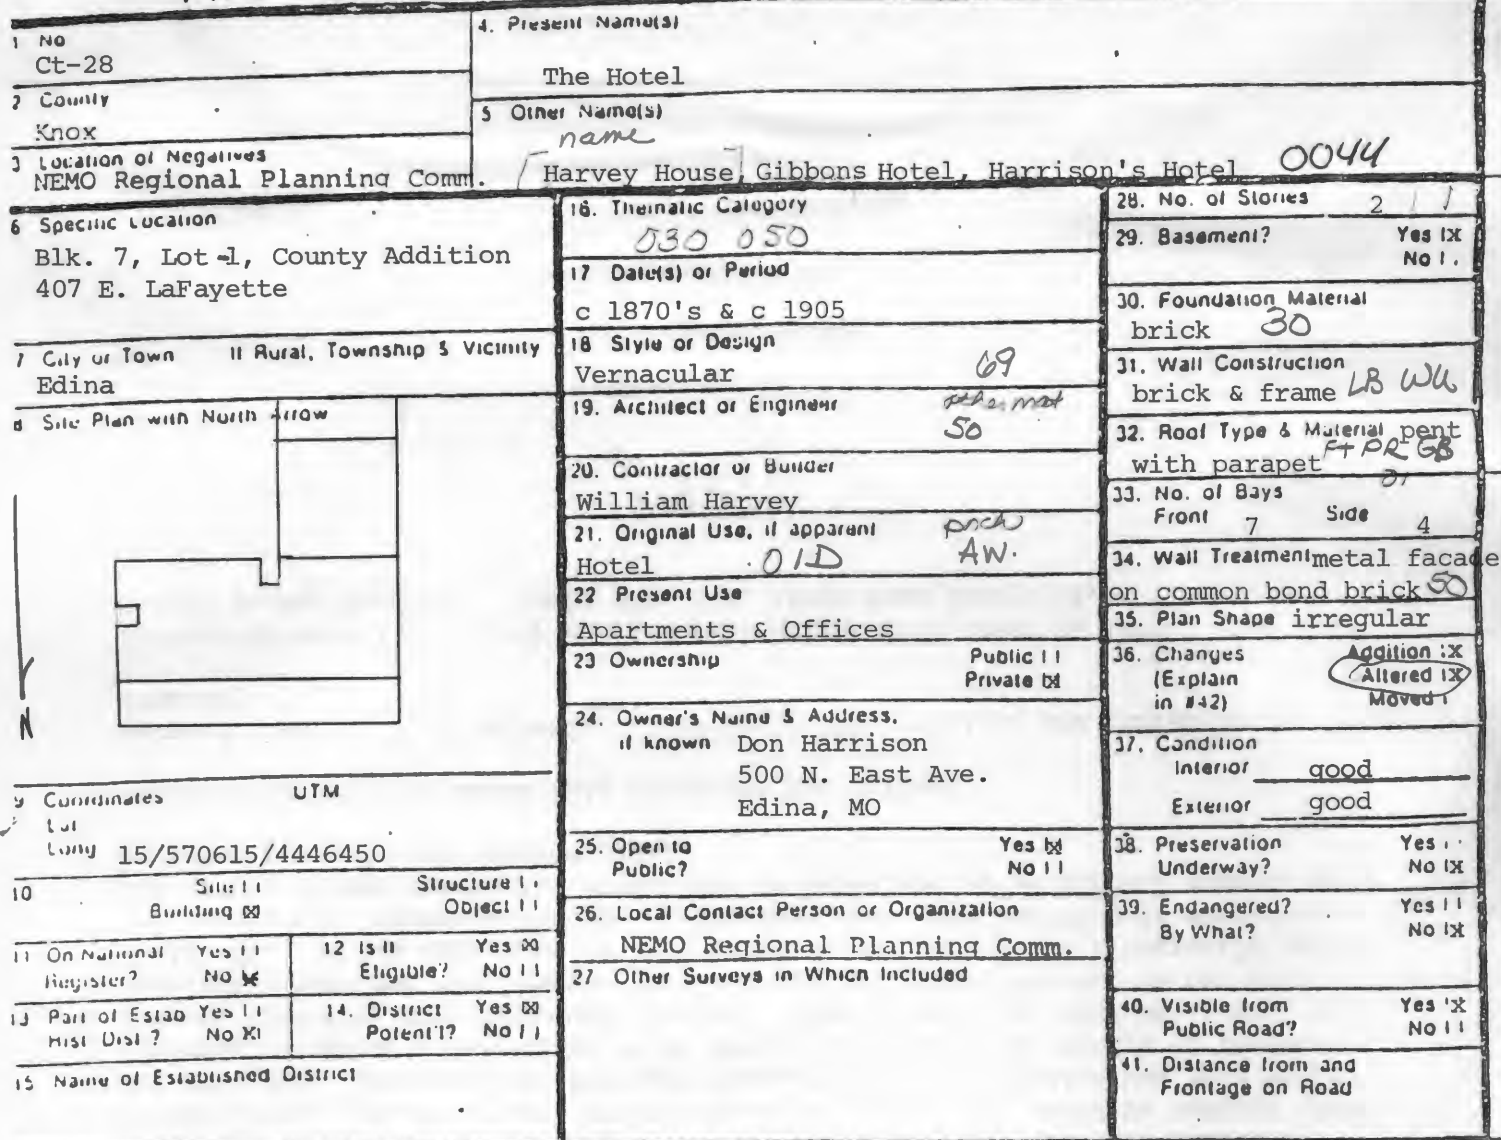 1 No
Ct-28
2 County
Knox
3 Location of Negatives
NEMO Regional Planning Comm.
4. Present Name(s)
The Hotel
5 Other Name(s)
name
Harvey House, Gibbons Hotel, Harrison's Hotel 0044
6 Specific Location
Blk. 7, Lot 1, County Addition
407 E. LaFayette
7 City or Town If Rural, Township & Vicinity
Edina
8 Site Plan with North Arrow
N
9 Coordinates UTM
Lat
Long 15/570615/4446450
10 Site Structure
Building X Object
11 On National Yes
Register? No X
12 Is It Yes X
Eligible? No
13 Part of Estab Yes
Hist Dist? No X
14. District Yes X
Potent'l? No
15 Name of Established District
16. Thematic Category
030 050
17 Date(s) or Period
c 1870's & c 1905
18 Style or Design
Vernacular 69
19. Architect or Engineer other mat
50
20. Contractor or Builder
William Harvey
21. Original Use, if apparent porch
Hotel 01D AW.
22 Present Use
Apartments & Offices
23 Ownership Public
Private X
24. Owner's Name & Address,
if known Don Harrison
500 N. East Ave.
Edina, MO
25. Open to Yes X
Public? No
26. Local Contact Person or Organization
NEMO Regional Planning Comm.
27 Other Surveys in Which Included
28. No. of Stories 2
29. Basement? Yes X
No
30. Foundation Material
brick 30
31. Wall Construction
brick & frame LB WU
32. Roof Type & Material pent
with parapet Ft PR GB
33. No. of Bays
Front 7 Side 4
34. Wall Treatment metal facade
on common bond brick 50
35. Plan Shape irregular
36. Changes Addition X
(Explain Altered X
in #42) Moved
37. Condition
Interior good
Exterior good
38. Preservation Yes
Underway? No X
39. Endangered? Yes
By What? No X
40. Visible from Yes X
Public Road? No
41. Distance from and
Frontage on Road